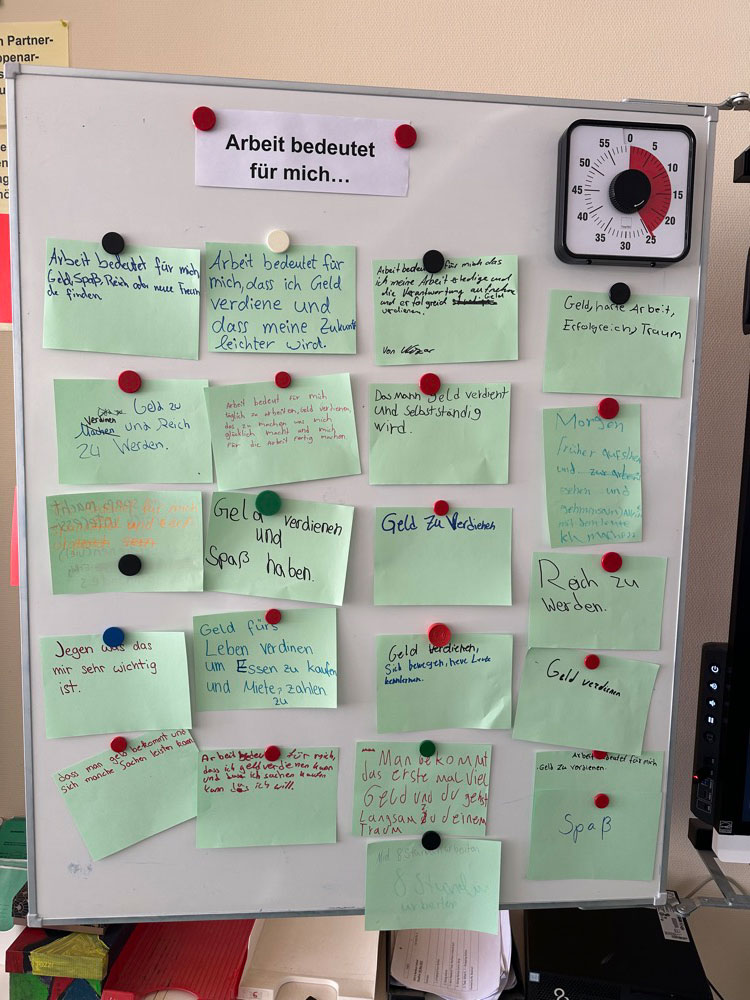 n Partner-
Arbeit bedeutet
für mich...
0
5
10
15
20
25
30
35
40
45
50
55
Arbeit bedeutet für mich
Geld, Spaß, Reich oder neue Freun
de finden.
Arbeit bedeutet für
mich, dass ich Geld
verdiene und
dass meine Zukunft
leichter wird.
Arbeit bedeutet für mich das
ich meine Arbeit erledige und
die Verantwortung aufnehme
und erfolgreid Geld
verdienen.
Von
Geld, harte Arbeit,
Erfolgreich, Traum
Geld zu
Verdinen und Reich
zu Werden.
Arbeit bedeut für mich
täglich zu arbeiten, Geld verdienen,
das zu machen was mich
glücklich macht und mich
für die arbeit fertig machen
Das mann Geld verdient
und Selbstständig
wird.
Morgen
früher aufstehen
und
gehen und
Geld verdienen
und
Spaß haben.
Geld zu Verdienen
Reich zu
Werden.
Jegen was das
mir sehr wichtig
ist.
Geld fürs
Leben verdinen
um Essen zu kaufen
und Miete zahlen
zu
Geld verdienen,
Sich bewegen, neue Leute
kennlernen.
Geld verdienen
dass man geld bekommt und
sich manche Sachen leisten kann
Arbeit bedeutet für mich,
dass ich geld verdienen kann
und mir ich sachen kaufen
kann das ich will.
Man bekommt
das erste mal viel
Geld und du gehst
Langsam zu deinem
Traum
Arbeit bedeutet für mich
Geld zu verdienen.
Spaß
8 Stunden
arbeiten